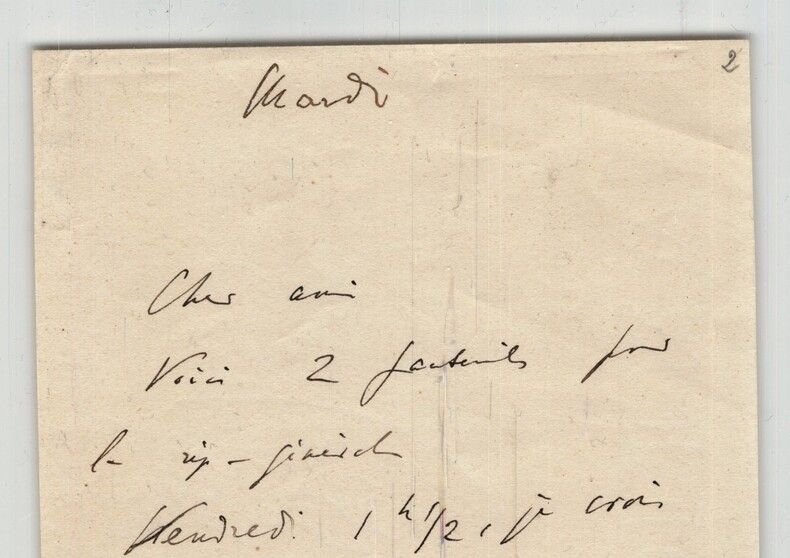 2
Mardi
Cher ami
Voici 2 fauteuils pour
la rép - générale
Vendredi 1 h 1/2, je crois